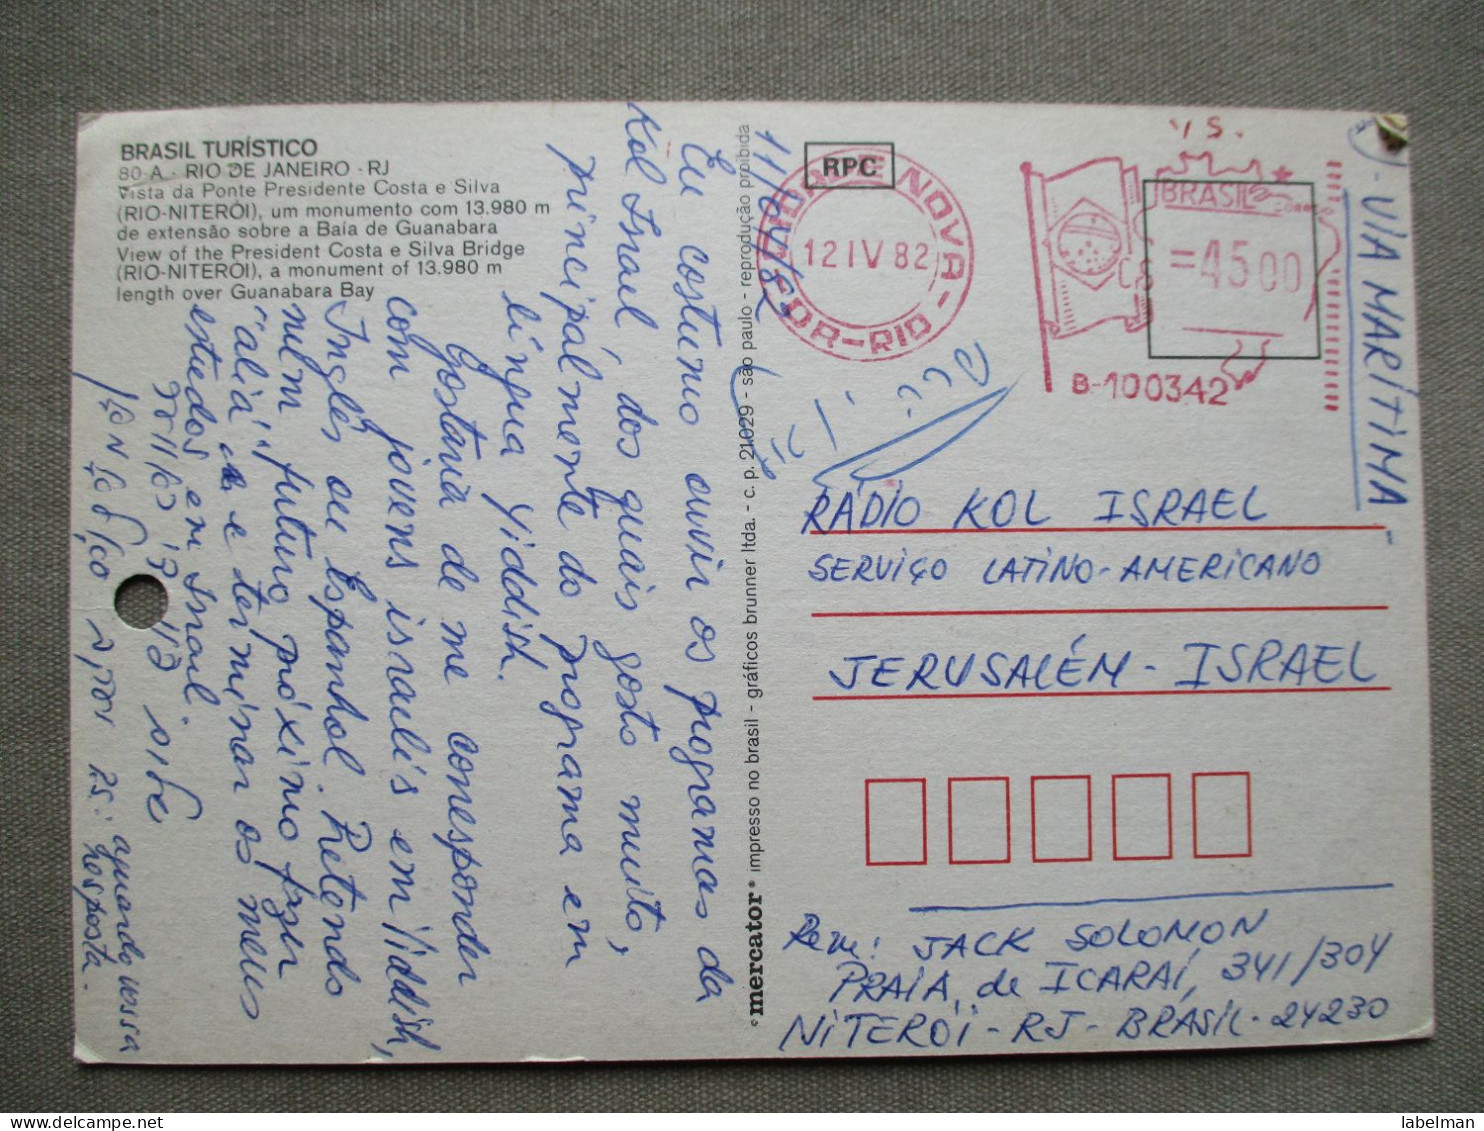 BRASIL TURÍSTICO
80-A - RIO DE JANEIRO - RJ
Vista da Ponte Presidente Costa e Silva
(RIO-NITERÓI), um monumento com 13.980 m
de extensão sobre a Baía de Guanabara
View of the President Costa e Silva Bridge
(RIO-NITERÓI), a monument of 13.980 m
length over Guanabara Bay
11/04/82
Eu costumo ouvir os programas da
Kol Israel, dos quais gosto muito,
principálmente do programa em
língua Yiddish.
Gostaria de me corresponder
com jovens israelis em Yiddish,
Inglês ou Espanhol. Pretendo
num futuro próximo fazer
"aliá" e terminar os meus
estudos em Israel.
aguardo vossa
resposta.
©mercator® impresso no brasil - gráficos brunner ltda. - c. p. 21029 - são paulo - reprodução proibida
RPC
NOVA
12 IV 82
FOR-RIO
BRASIL
=4500
B-100342
- VIA MARÍTIMA -
RÁDIO KOL ISRAEL
SERVIÇO LATINO-AMERICANO
JERUSALÉM - ISRAEL
Rem: JACK SOLOMON
PRAIA de ICARAÍ, 341/304
NITERÓI - RJ - BRASIL - 24230
labelman
delcampe.net